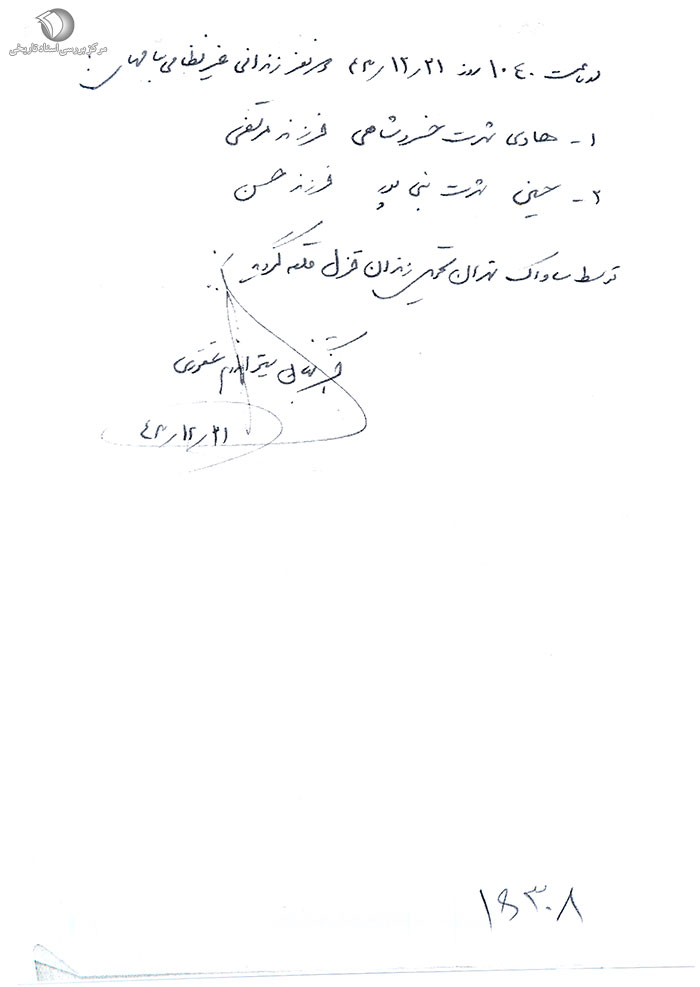 مرکز بررسی اسناد تاریخی
ساعت ۱۰۴۰ روز ۴۳/۱۲/۲۱ دو نفر زندانی غیر نظامی باسامی
۱- هادی شهرت خسروشاهی فرزند مرتضی
۲- حسین شهرت بنی فرزند حسن
توسط ساواک تهران تحویل زندان قزل قلعه گردید
۴۳/۱۲/۲۱
۱۶۳۰۸